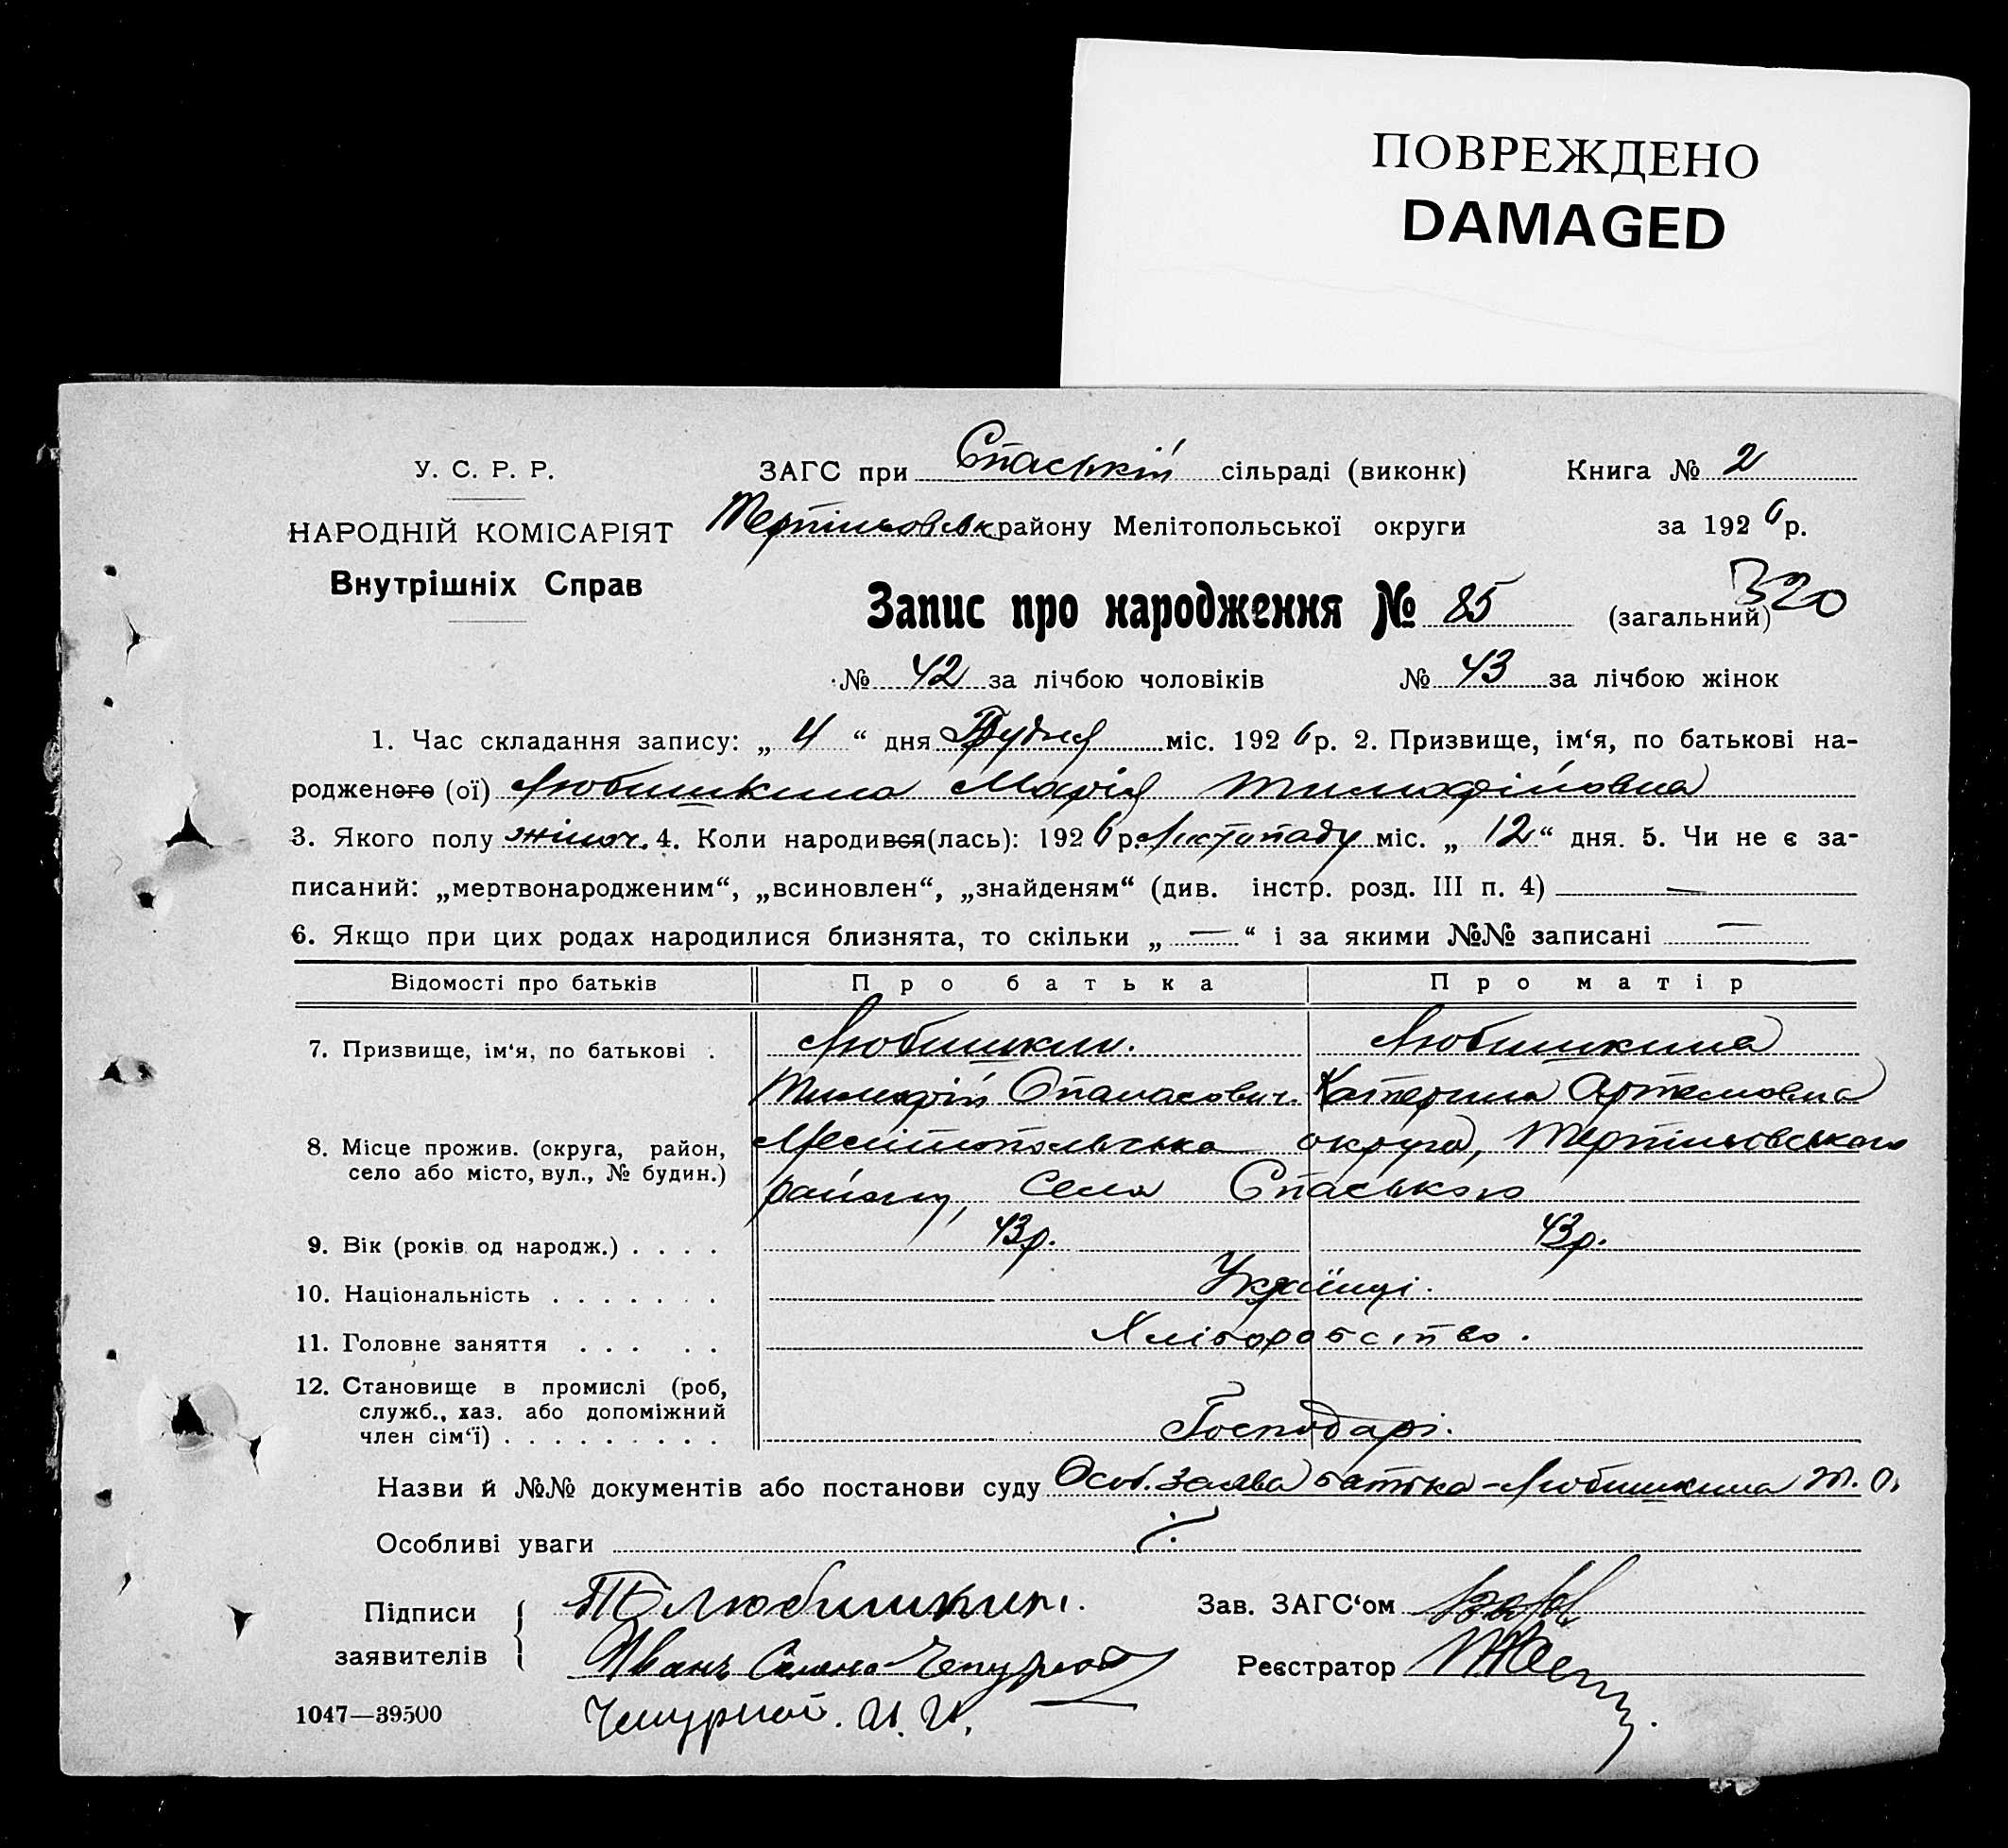 ПОВРЕЖДЕНО
DAMAGED
У. С. Р. Р.
НАРОДНІЙ КОМІСАРІЯТ
Внутрішніх Справ
ЗАГС при Спаській сільраді (виконк)
Терпіньовськ району Мелітопольської округи
Книга № 2
за 1926 р.
320
Запис про народження № 85 (загальний)
№ 42 за лічбою чоловіків № 43 за лічбою жінок
1. Час складання запису: „ 4 “ дня Грудня міс. 1926 р. 2. Призвище, ім‘я, по батькові на-
родженого (ої) Любишкина Марія Тимофійовна
3. Якого полу жіноч. 4. Коли народився(лась): 1926 р. Листопаду міс. „ 12 “ дня. 5. Чи не є за-
писаний: „мертвонародженим“, „всиновлен“, „знайденям“ (див. інстр. розд. III п. 4) —
6. Якщо при цих родах народилися близнята, то скільки „ — “ і за якими №№ записані —
Відомості про батьків Про батька Про матір
7. Призвище, ім‘я, по батькові . Любишкин. Любишкина
Тимофій Опанасович. Катерина Артемовна
8. Місце прожив. (округа, район, Мелітопольська округа, Терпіньовського
село або місто, вул., № будин.) району, Села Спаського
9. Вік (років од народж.) . . . . 43р. 43р.
10. Національність . . . . . . . Українці.
11. Головне заняття . . . . . Хліборобство.
12. Становище в промислі (роб,
служб., хаз. або допоміжний
член сім‘ї) . . . . . . . . . Господарі.
Назви й №№ документів або постанови суду Особ. заява батька - Любишкина Т. О.
Особливі уваги
Підписи
заявителів
Т Любишкин.
Иванъ Чепурной
Чепурной. И. И.
Зав. ЗАГС‘ом
Реєстратор
1047—39500